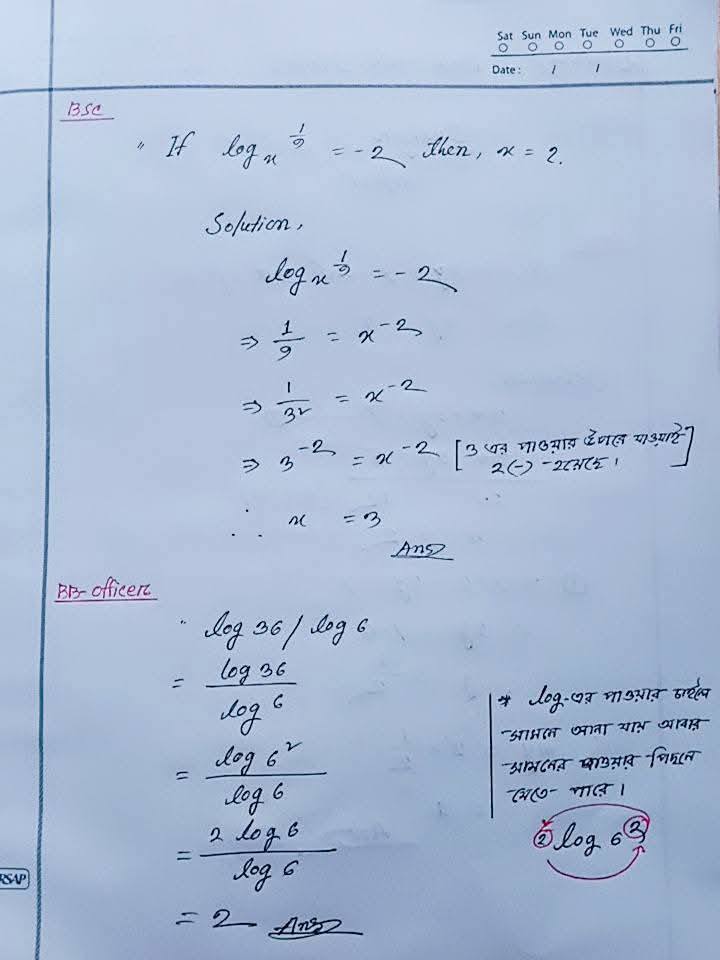 Sat Sun Mon Tue Wed Thu Fri
Date: / /
BSC
" If log x 1/9 = -2 then, x = ?.
Solution,
log x 1/9 = -2
⇒ 1/9 = x⁻²
⇒ 1/3² = x⁻²
⇒ 3⁻² = x⁻² [3 এর পাওয়ার উপরে যাওয়াই
2(-) হয়েছে।]
∴ x = 3
Ans
BB-officer
" log 36 / log 6
= log 36 / log 6
= log 6² / log 6
= 2 log 6 / log 6
= 2 Ans
* log-এর পাওয়ার চাইলে
সামনে আনা যায় আবার
সামনের পাওয়ার পিছনে
যেতে পারে।
2 log 6 2
RSAP